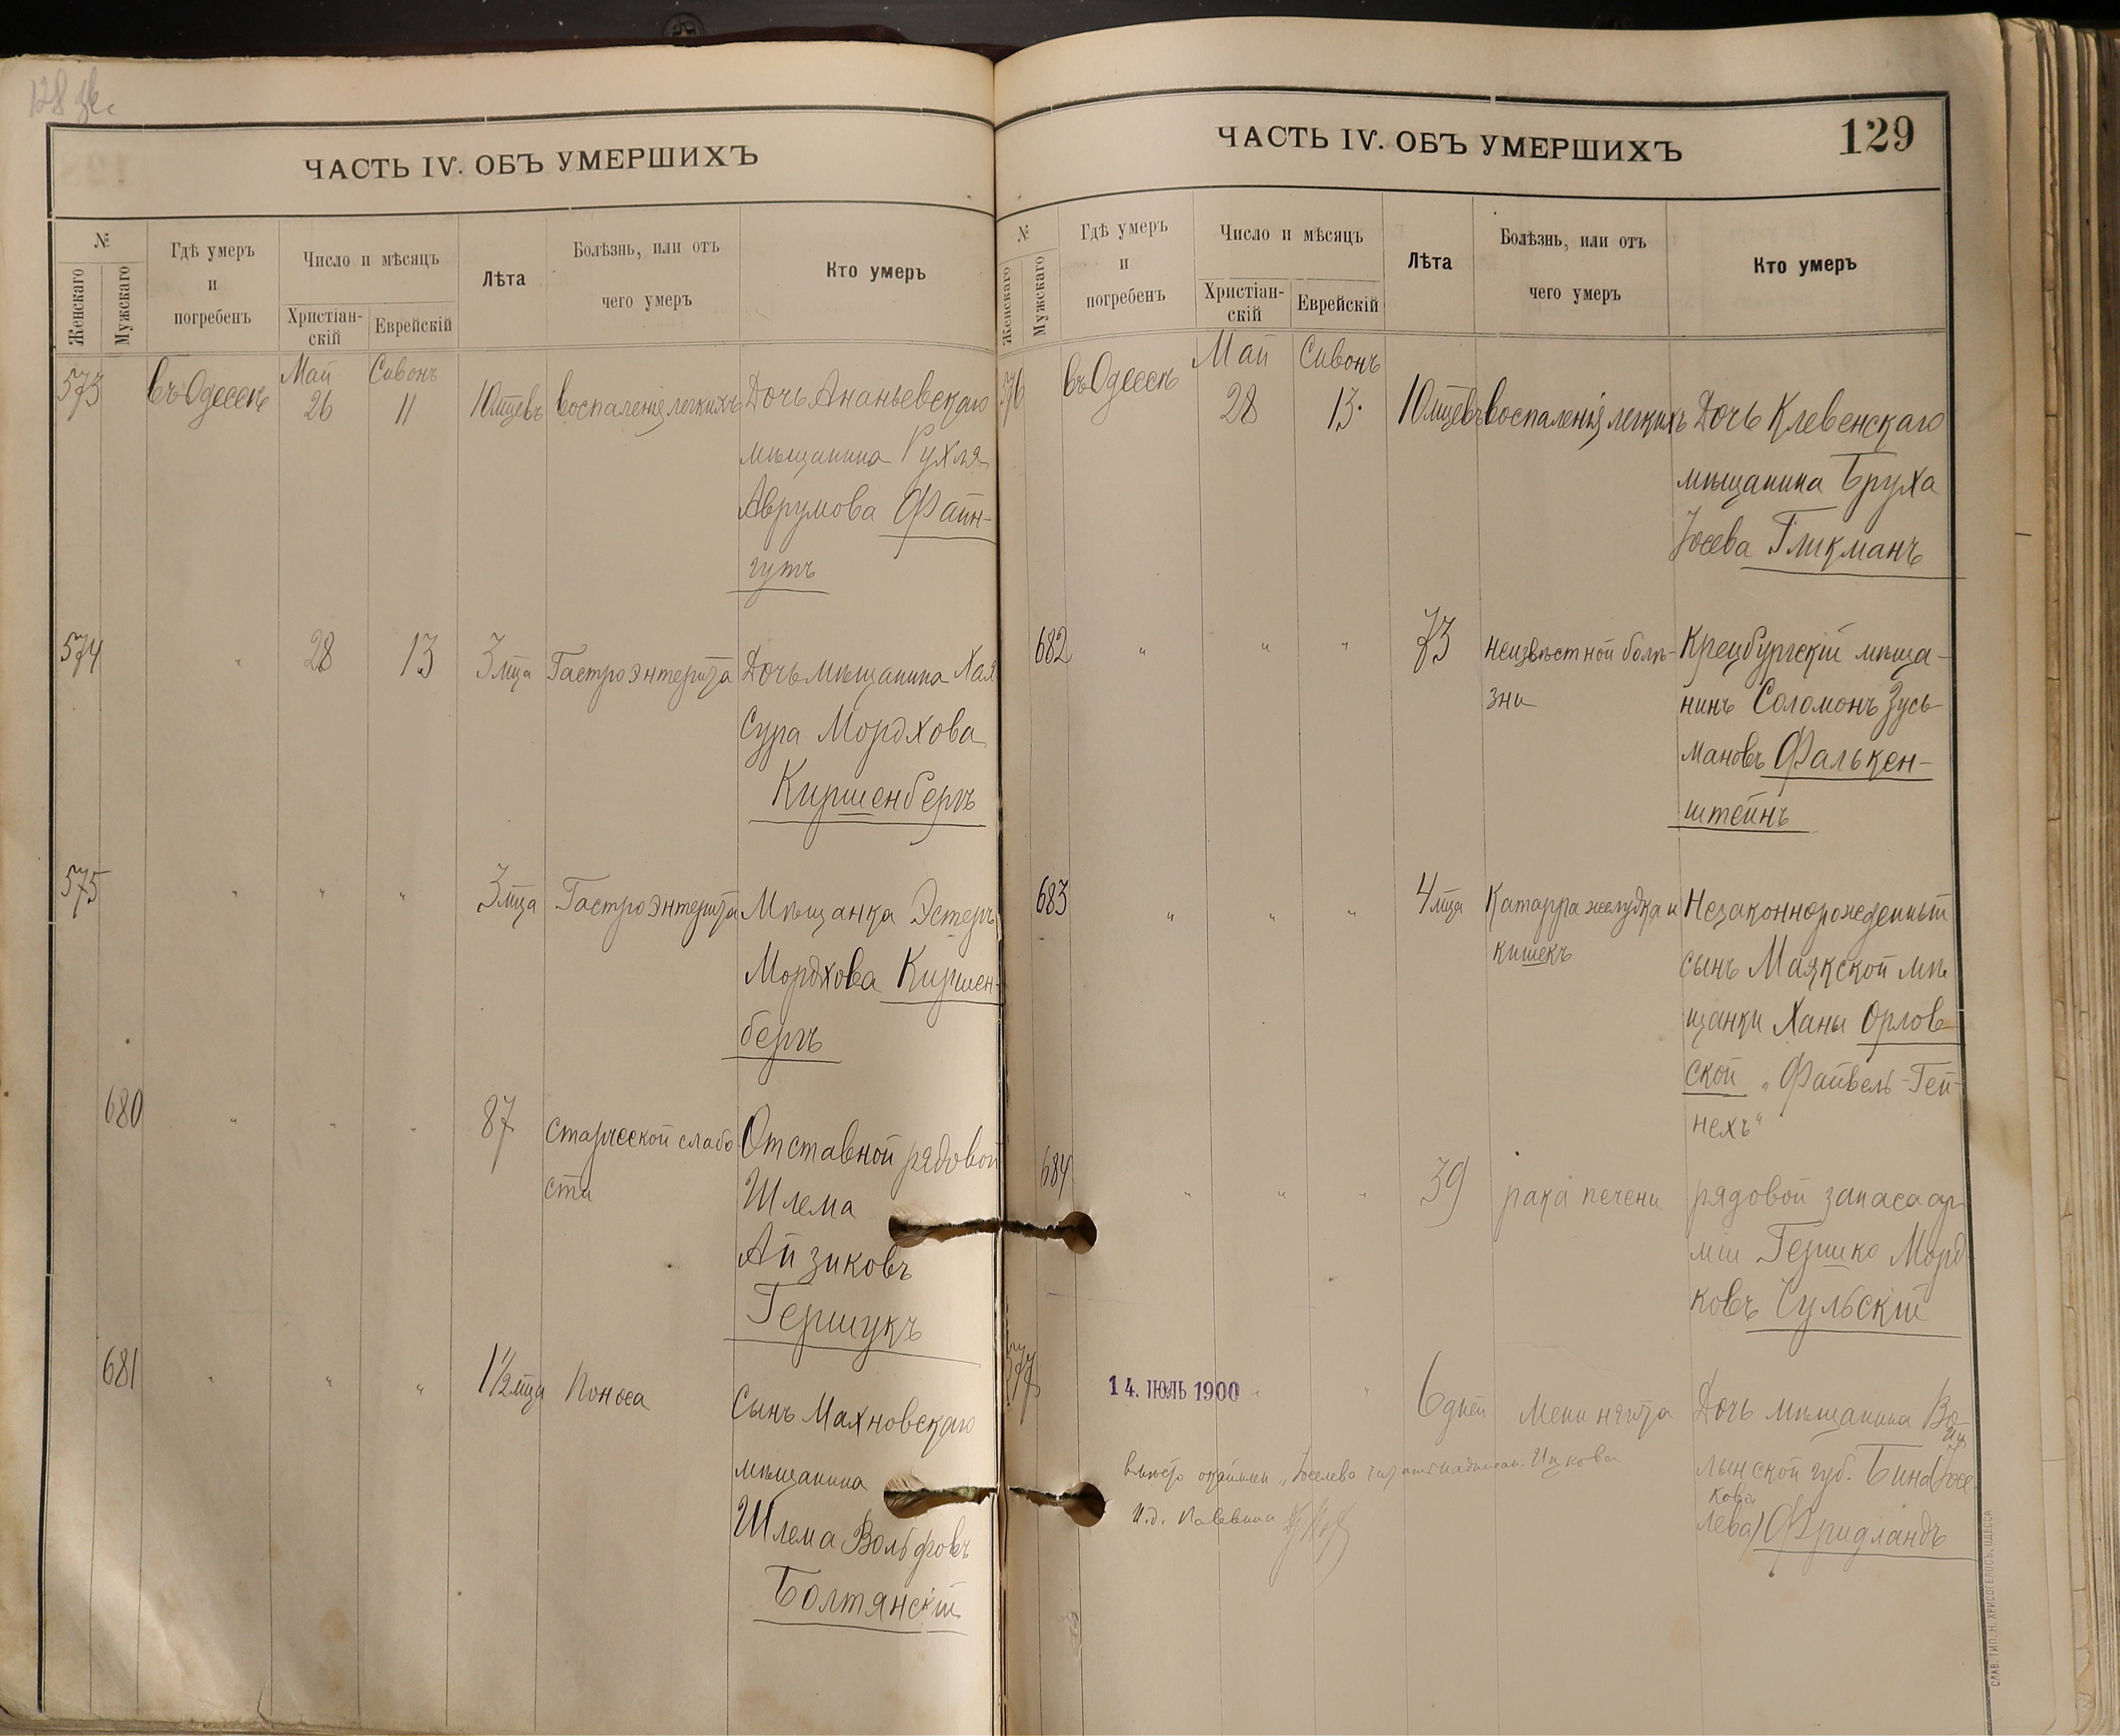 128 
ЧАСТЬ IV. ОБЪ УМЕРШИХЪ
№
Женскаго
Мужскаго
Гдѣ умеръ
и
погребенъ
Число и мѣсяцъ
Христіан-
скій
Еврейскій
Лѣта
Болѣзнь, или отъ
чего умеръ
Кто умеръ
573
въ Одессѣ
Май
26
Сивонъ
11
10 мцевъ
воспаленія легкихъ
Дочь Ананьевскаго
мѣщанина Рухля
Аврумова Файн-
гутъ
574
"
28
13
3 мца
Гастроэнтерита
Дочь мѣщанина Хая
Сура Мордхова
Киршенбергъ
575
"
"
"
3 мца
Гастроэнтерита
Мѣщанка Эстеръ
Мордхова Киршен-
бергъ
680
"
"
"
87
старческой слабо
сти
Отставной рядовой
Шлема
Айзиковъ
Гершукъ
681
"
"
"
1 1/2 мца
Поноса
Сынъ Махновскаго
мѣщанина
Шлема Вольфовъ
Болтянскій
ЧАСТЬ IV. ОБЪ УМЕРШИХЪ
129
№
Женскаго
Мужскаго
Гдѣ умеръ
и
погребенъ
Число и мѣсяцъ
Христіан-
скій
Еврейскій
Лѣта
Болѣзнь, или отъ
чего умеръ
Кто умеръ
576
въ Одессѣ
Май
28
Сивонъ
13.
10 мцевъ
воспаленія легкихъ
Дочь Клевенскаго
мѣщанина Бруха
Іосева Гликманъ
682
"
"
"
73
неизвѣстной болѣ-
зни
Крецбургскій мѣща-
нинъ Соломонъ Зусь-
мановъ Фалькен-
штейнъ
683
"
"
"
4 мца
Катарра желудка и
кишекъ
Незаконнорожденный
сынъ Маякской мѣ
щанки Ханы Орлов
ской „Файвель-Гей-
нехъ"
684
"
"
"
39
рака печени
рядовой запаса ар
міи Гершко Морд
ковъ Сульскій
577
14. ІЮЛЬ 1900
"
"
6 дней
Менингита
Дочь мѣщанина Во-
Иц
лынской губ. Бина (Іосе-
кова
лева) Фридландъ
вмѣсто „Іоселева Ицкова
И.д. Раввина
СЛАВ. ТИП. Н. ХРИСОГЕЛОСЪ, ОДЕССА